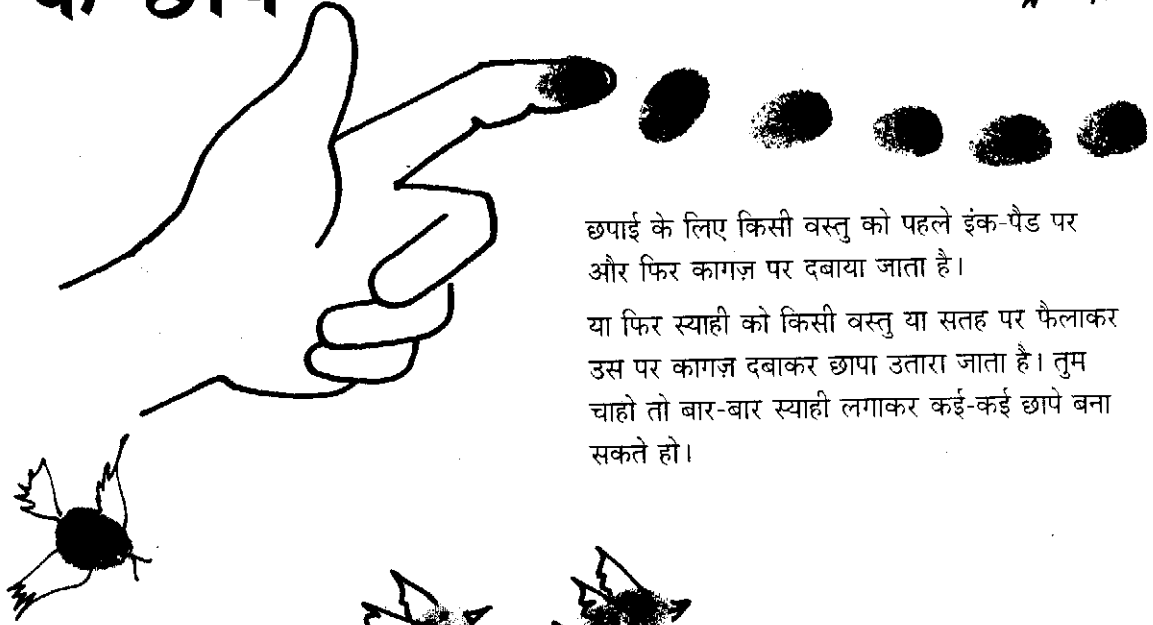 छपाई के लिए किसी वस्तु को पहले इंक-पैड पर
और फिर कागज़ पर दबाया जाता है।
या फिर स्याही को किसी वस्तु या सतह पर फैलाकर
उस पर कागज़ दबाकर छापा उतारा जाता है। तुम
चाहो तो बार-बार स्याही लगाकर कई-कई छापे बना
सकते हो।